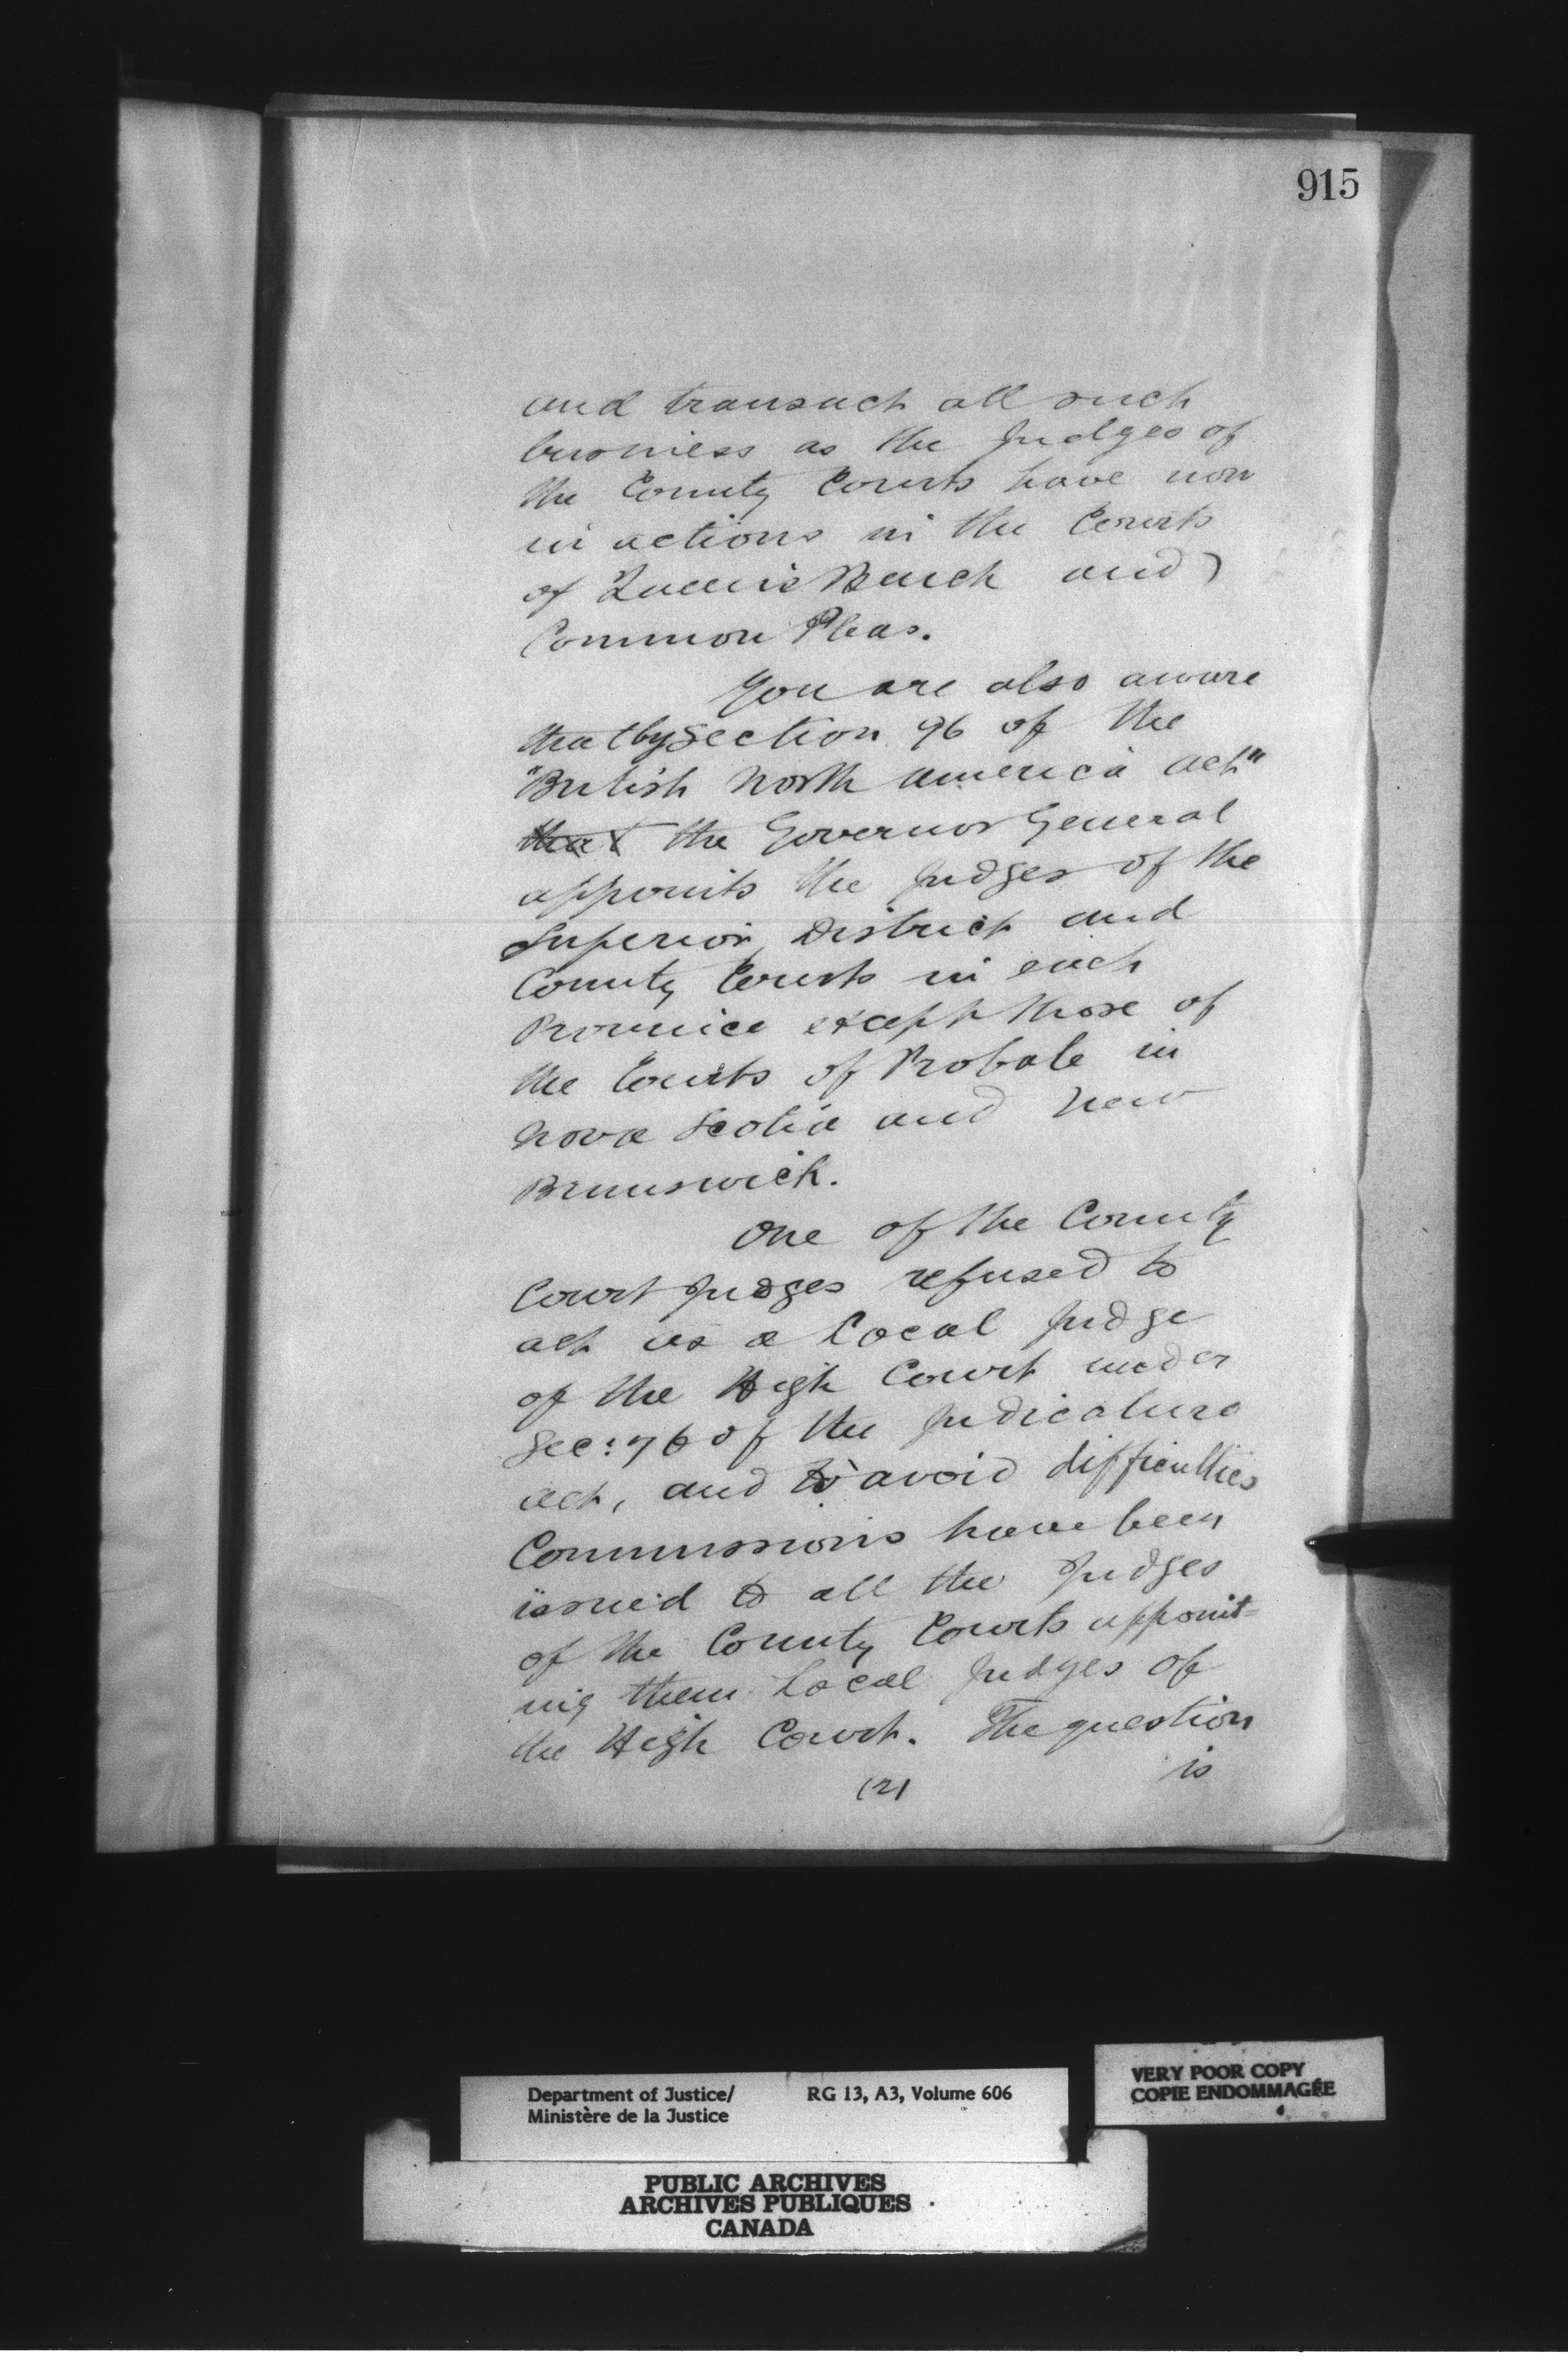 915
and transact all such
business as the Judges of
the County Courts have now
in actions in the Courts
of Queen's Bench and
Common Pleas.
You are also aware
that by Section 96 of the
"British North America Act"
that the Governor General
appoints the Judges of the
Superior, District and
County Courts in each
Province except those of
the Courts of Probate in
Nova Scotia and New
Brunswick.
One of the County
Court Judges refused to
act as a Local Judge
of the High Court under
Sec: 76 of the Judicature
Act, and to avoid difficulties
Commissions have been
issued to all the Judges
of the County Courts appoint=
ing them Local Judges of
the High Court. The question
(2) is
Department of Justice/ RG 13, A3, Volume 606
Ministère de la Justice
VERY POOR COPY
COPIE ENDOMMAGÉE
PUBLIC ARCHIVES
ARCHIVES PUBLIQUES
CANADA